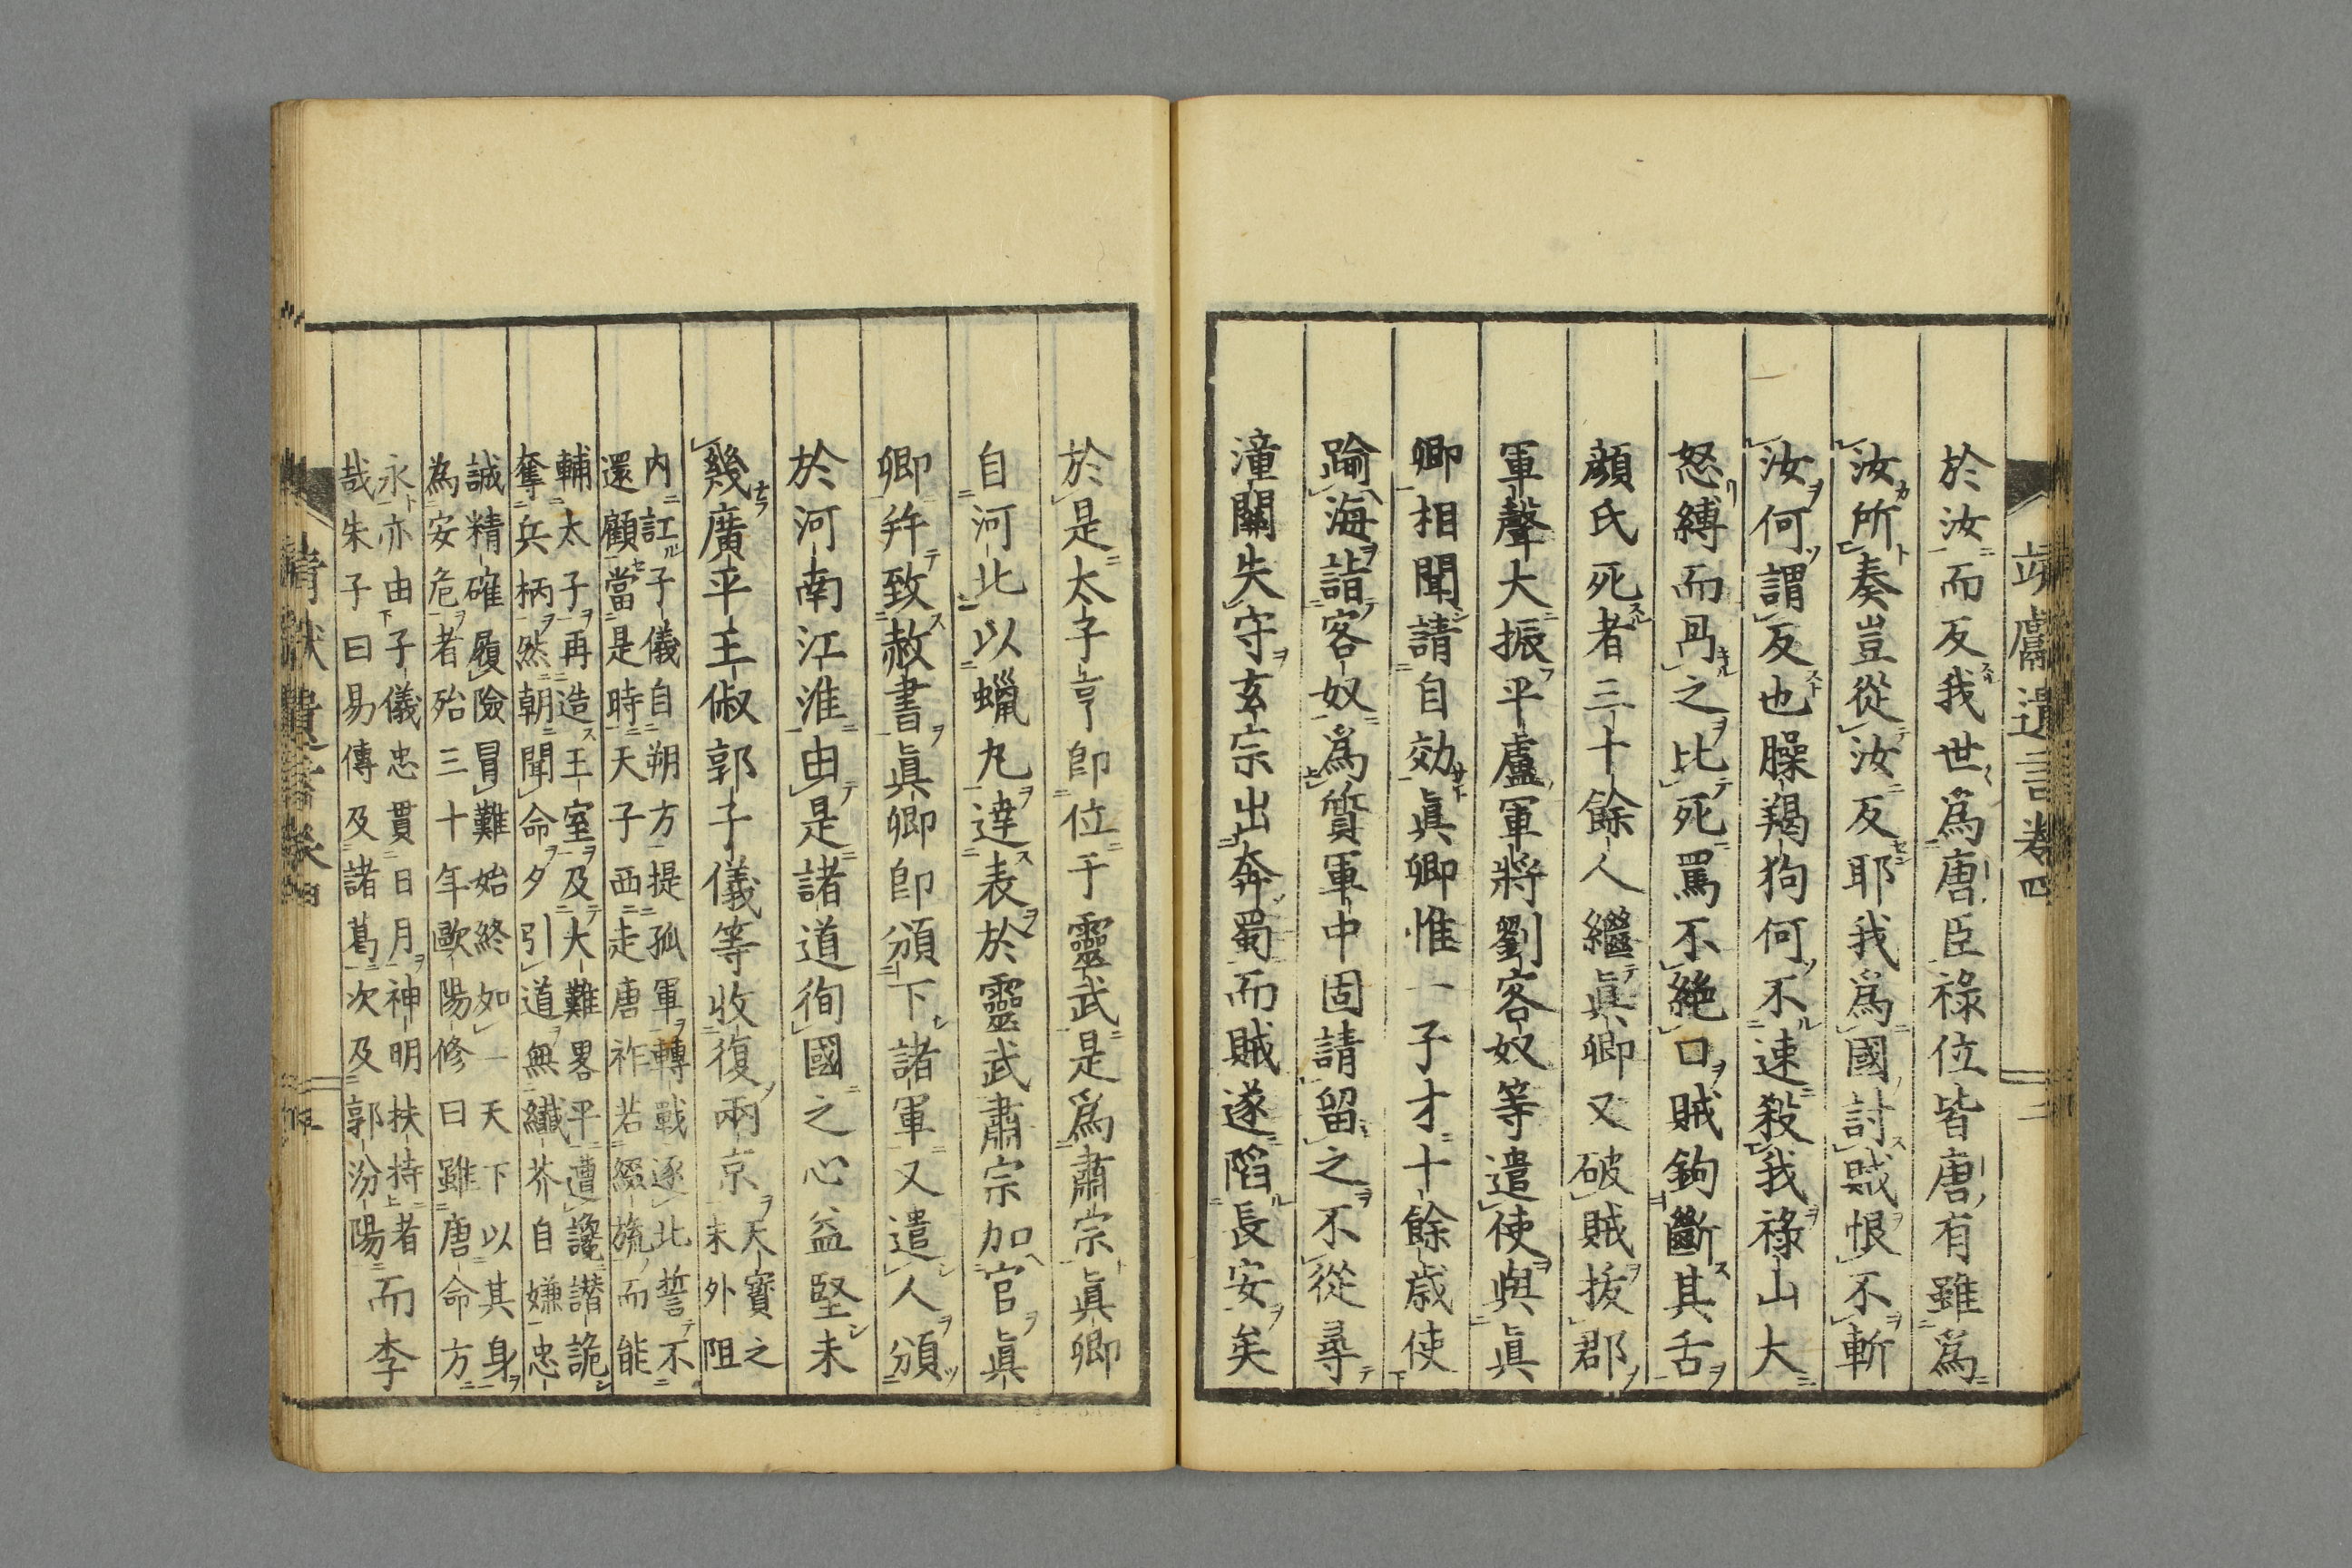 靖獻遺言卷四
二
於汝而反我世爲唐臣祿位皆唐有雖爲
汝所奏豈從汝反耶我爲國討賊恨不斬
汝何謂反也臊羯狗何不速殺我祿山大
怒縛而冎之比死罵不絶口賊鉤斷其舌
顔氏死者三十餘人繼眞卿又破賊拔郡
軍聲大振平盧軍將劉客奴等遣使與眞
卿相聞請自効眞卿惟一子才十餘歳使
踰海詣客奴爲質軍中固請留之不從尋
潼關失守玄宗出奔蜀而賊遂陷長安矣
於是太子亨卽位于靈武是爲肅宗眞卿
自河北以蠟丸達表於靈武肅宗加官眞
卿幷致赦書眞卿卽頒下諸軍又遣人頒
於河南江淮由是諸道徇國之心益堅未
幾廣平王俶郭子儀等收復兩京天寶之
末外阻
內訌子儀自朔方提孤軍轉戰逐北誓不
還顧當是時天子西走唐祚若綴旒而能
輔太子再造王室及大難畧平遭讒譖詭
奪兵柄然朝聞命夕引道無纖芥自嫌忠
誠精確履險冒難始終如一天下以其身
為安危者殆三十年歐陽修曰雖唐命方
永亦由子儀忠貫日月神明扶持者
哉朱子曰易傳及諸葛次及郭汾陽
而李